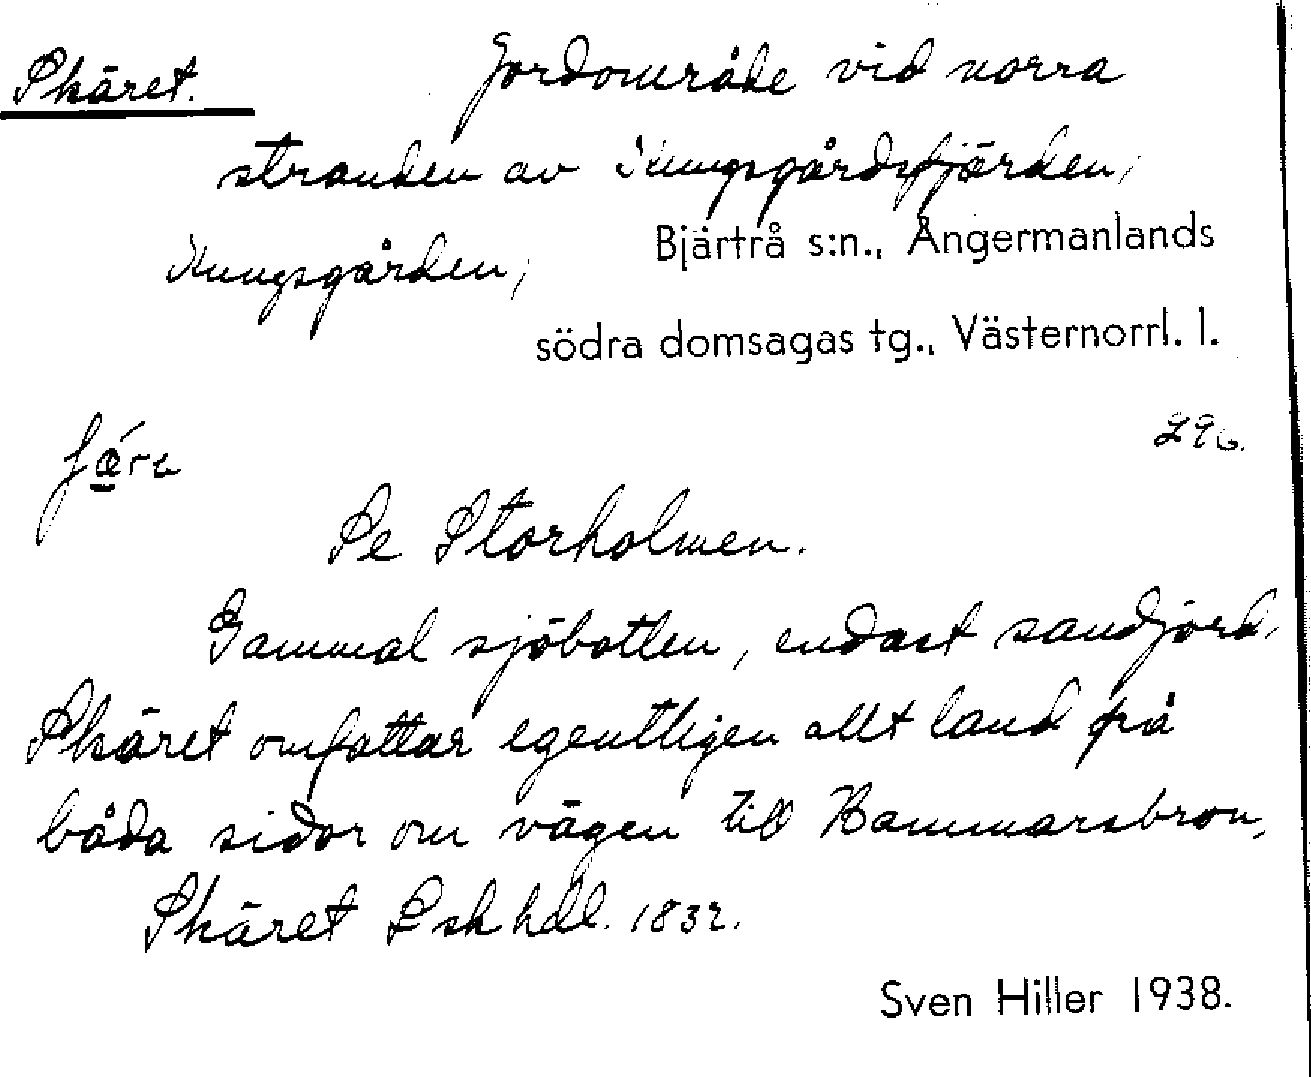 Skäret. Jordområde vid norra
stranden av Kungsgårdsfjärden,
Kungsgården, Bjärtrå s:n., Ångermanlands
södra domsagas tg., Västernorrl. l.
296.
Se Storholmen.
Gammal sjöbotten, endast sandjord.
Skäret omfattar egentligen allt land på
båda sidor om vägen till Hammarsbron.
Skäret Lsk hdl. 1832.
Sven Hiller 1938.